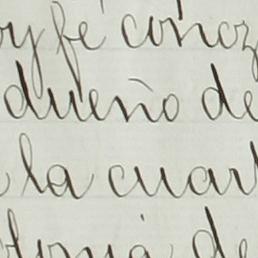 oy fé conoz
dueño de
la cuart
de